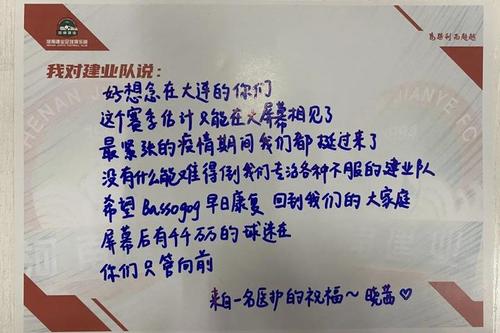 河南建业足球俱乐部
HENAN JIANYE FOOTBALL CLUB
为胜利而超越
我对建业队说：
好想念在大连的你们
这个赛季估计只能在大屏幕相见了
最紧张的疫情期间我们都挺过来了
没有什么能难得倒我们专治各种不服的建业队
希望Bassogog早日康复 回到我们的大家庭
屏幕后有千千万万的球迷在
你们只管向前
来自一名医护的祝福～晓茜♡